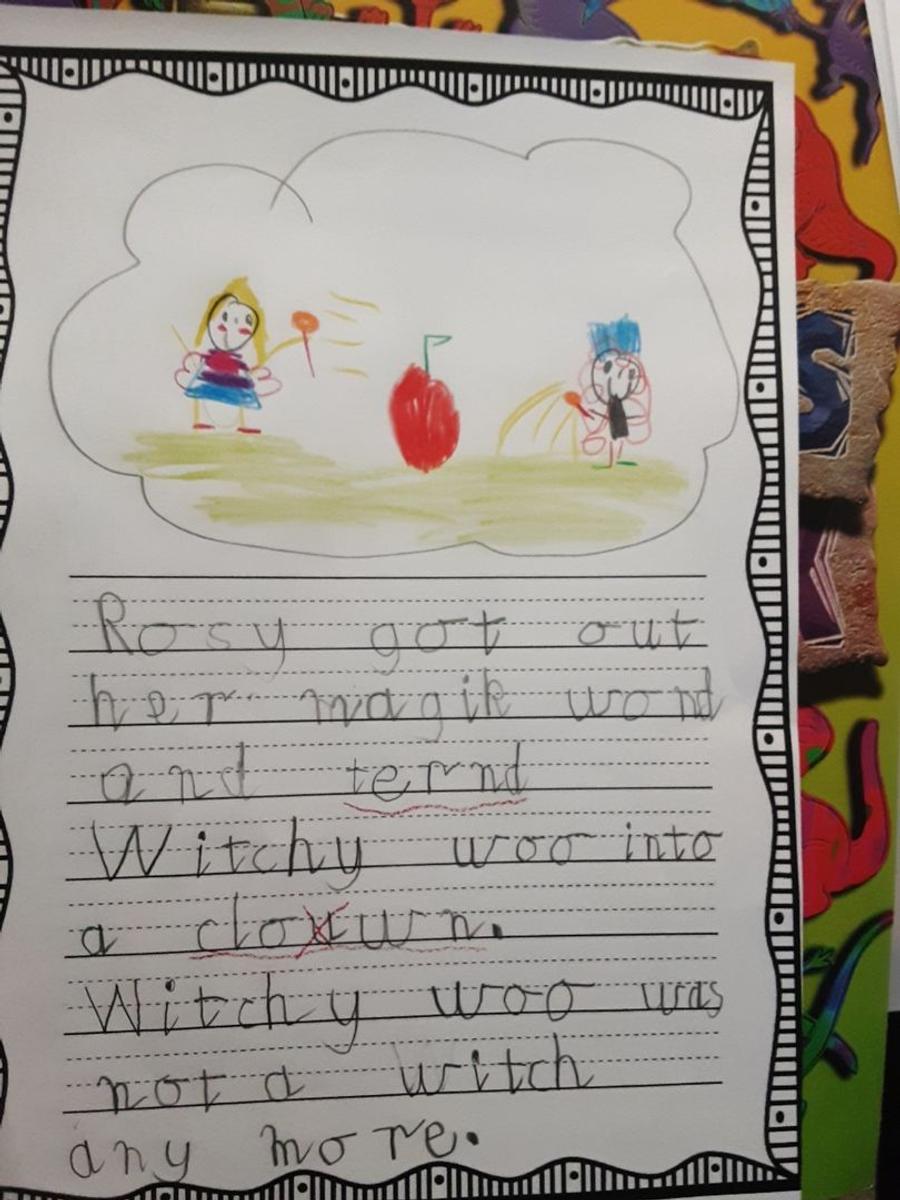 Rosy got out
her magik wond
and ternd
Witchy woo into
a clouwn.
Witchy woo was
not a witch
any more.